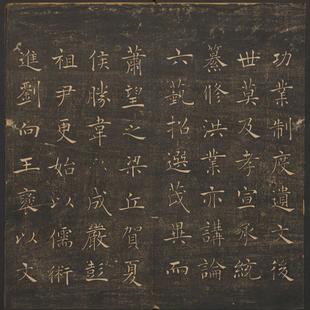 功業制度遺文後
世莫及孝宣承統
纂修洪業亦講論
六藝招選茂異而
蕭望之梁丘賀夏
侯勝韋成嚴彭
祖尹更始以儒術
進劉向王褒以文